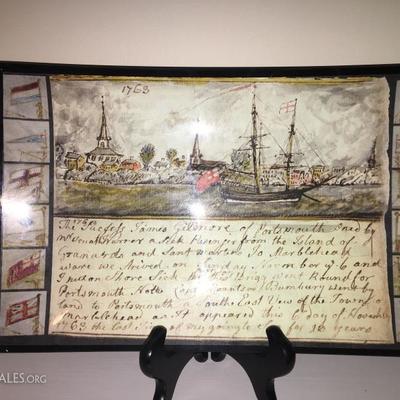 1763
The Success James Gilmore of Portsmouth
Mr Jonath Warner a Sick Passenger from the Island of
Granarda and Sant Martins To Marblehead
ware we Arived on Sunday November ye 6 and
Put on Shore Sick Brig went Round for
Portsmouth Capt Bunbury went by
land to Portsmouth a South East View of the Town of
marblehead as It appeared this 6 day of November
1763 the last of my going for 10 years
ALES.ORG